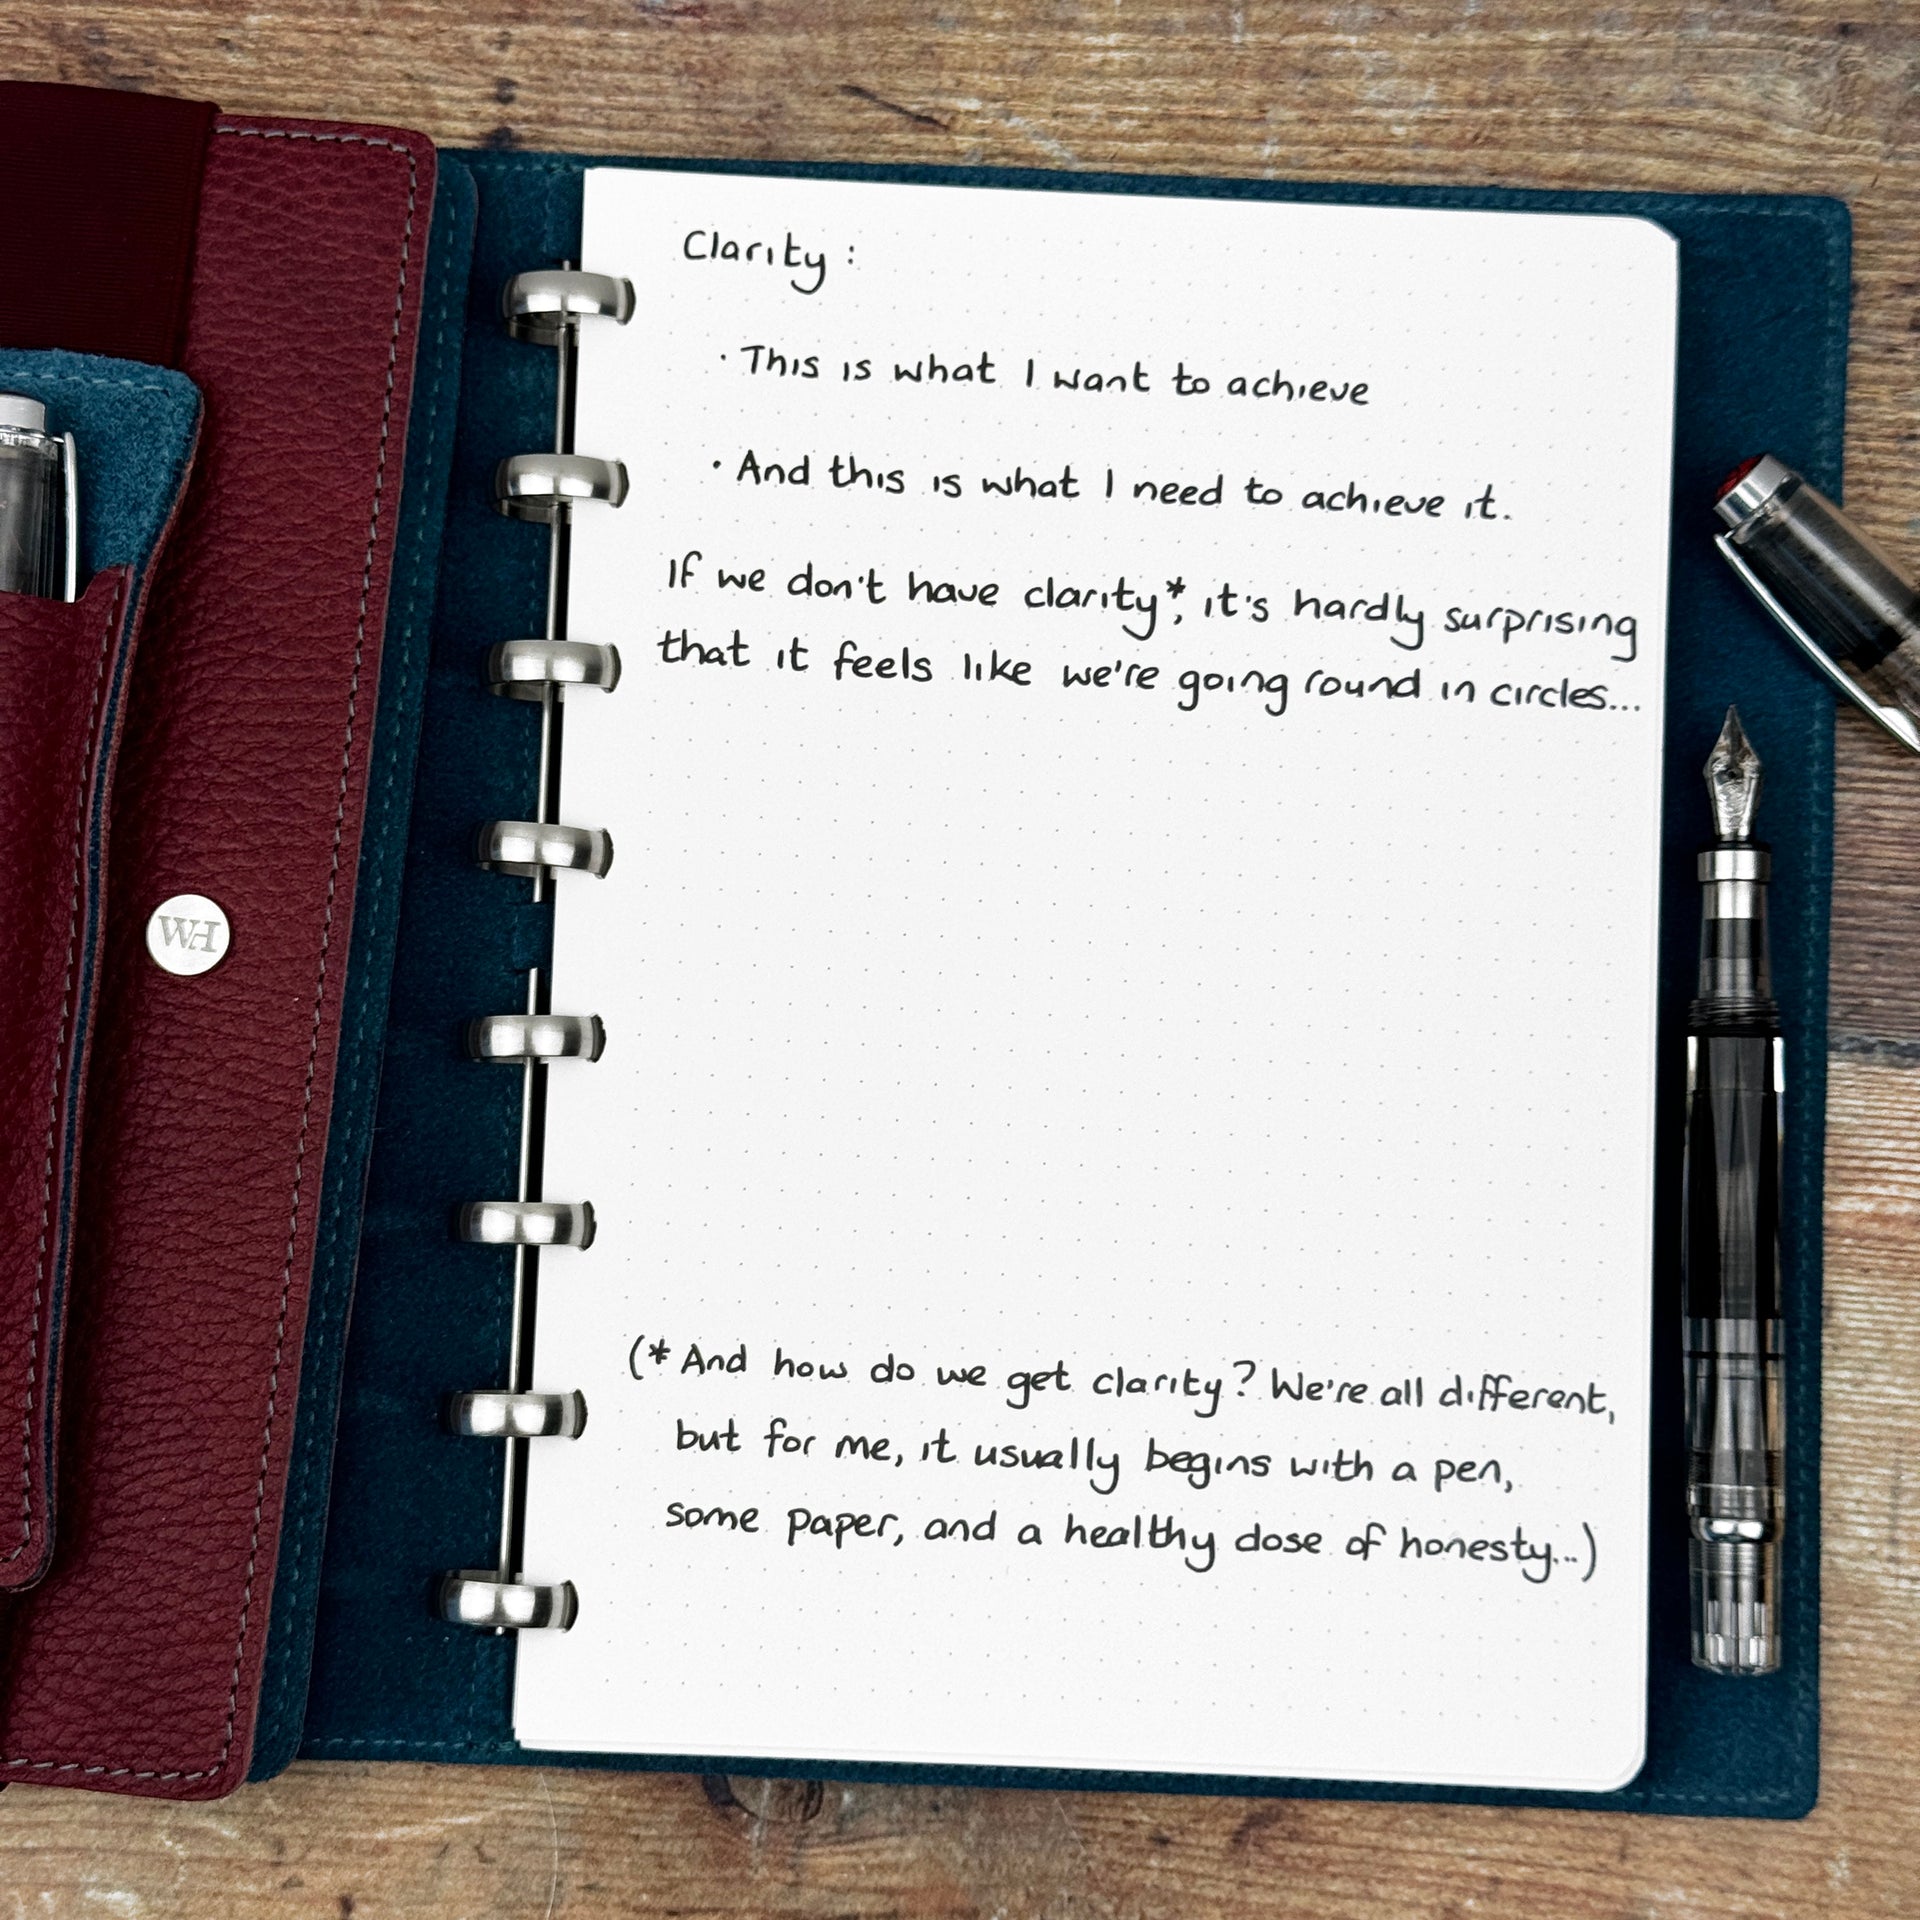 Clarity :
· This is what I want to achieve
· And this is what I need to achieve it.
If we don't have clarity*, it's hardly surprising
that it feels like we're going round in circles...
WH
(* And how do we get clarity? We're all different,
but for me, it usually begins with a pen,
some paper, and a healthy dose of honesty...)